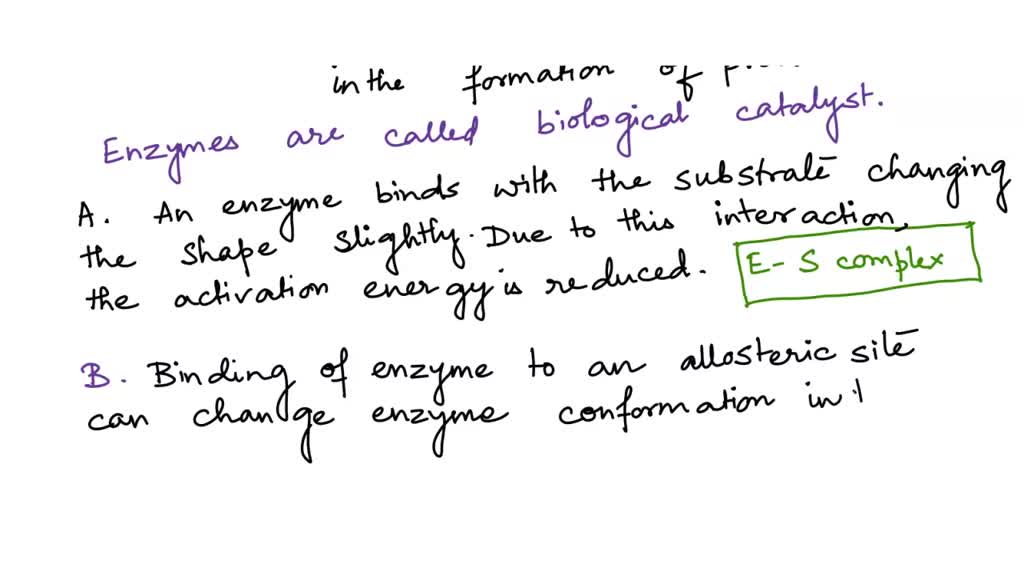 in the formation of
Enzymes are called biological catalyst.
A. An enzyme binds with the substrate changing
the shape slightly. Due to this interaction,
the activation energy is reduced.
E-S complex
B. Binding of enzyme to an allosteric site
can change enzyme conformation in